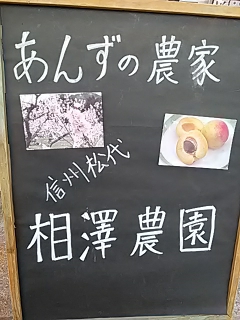 あんずの農家
信州松代
相澤農園